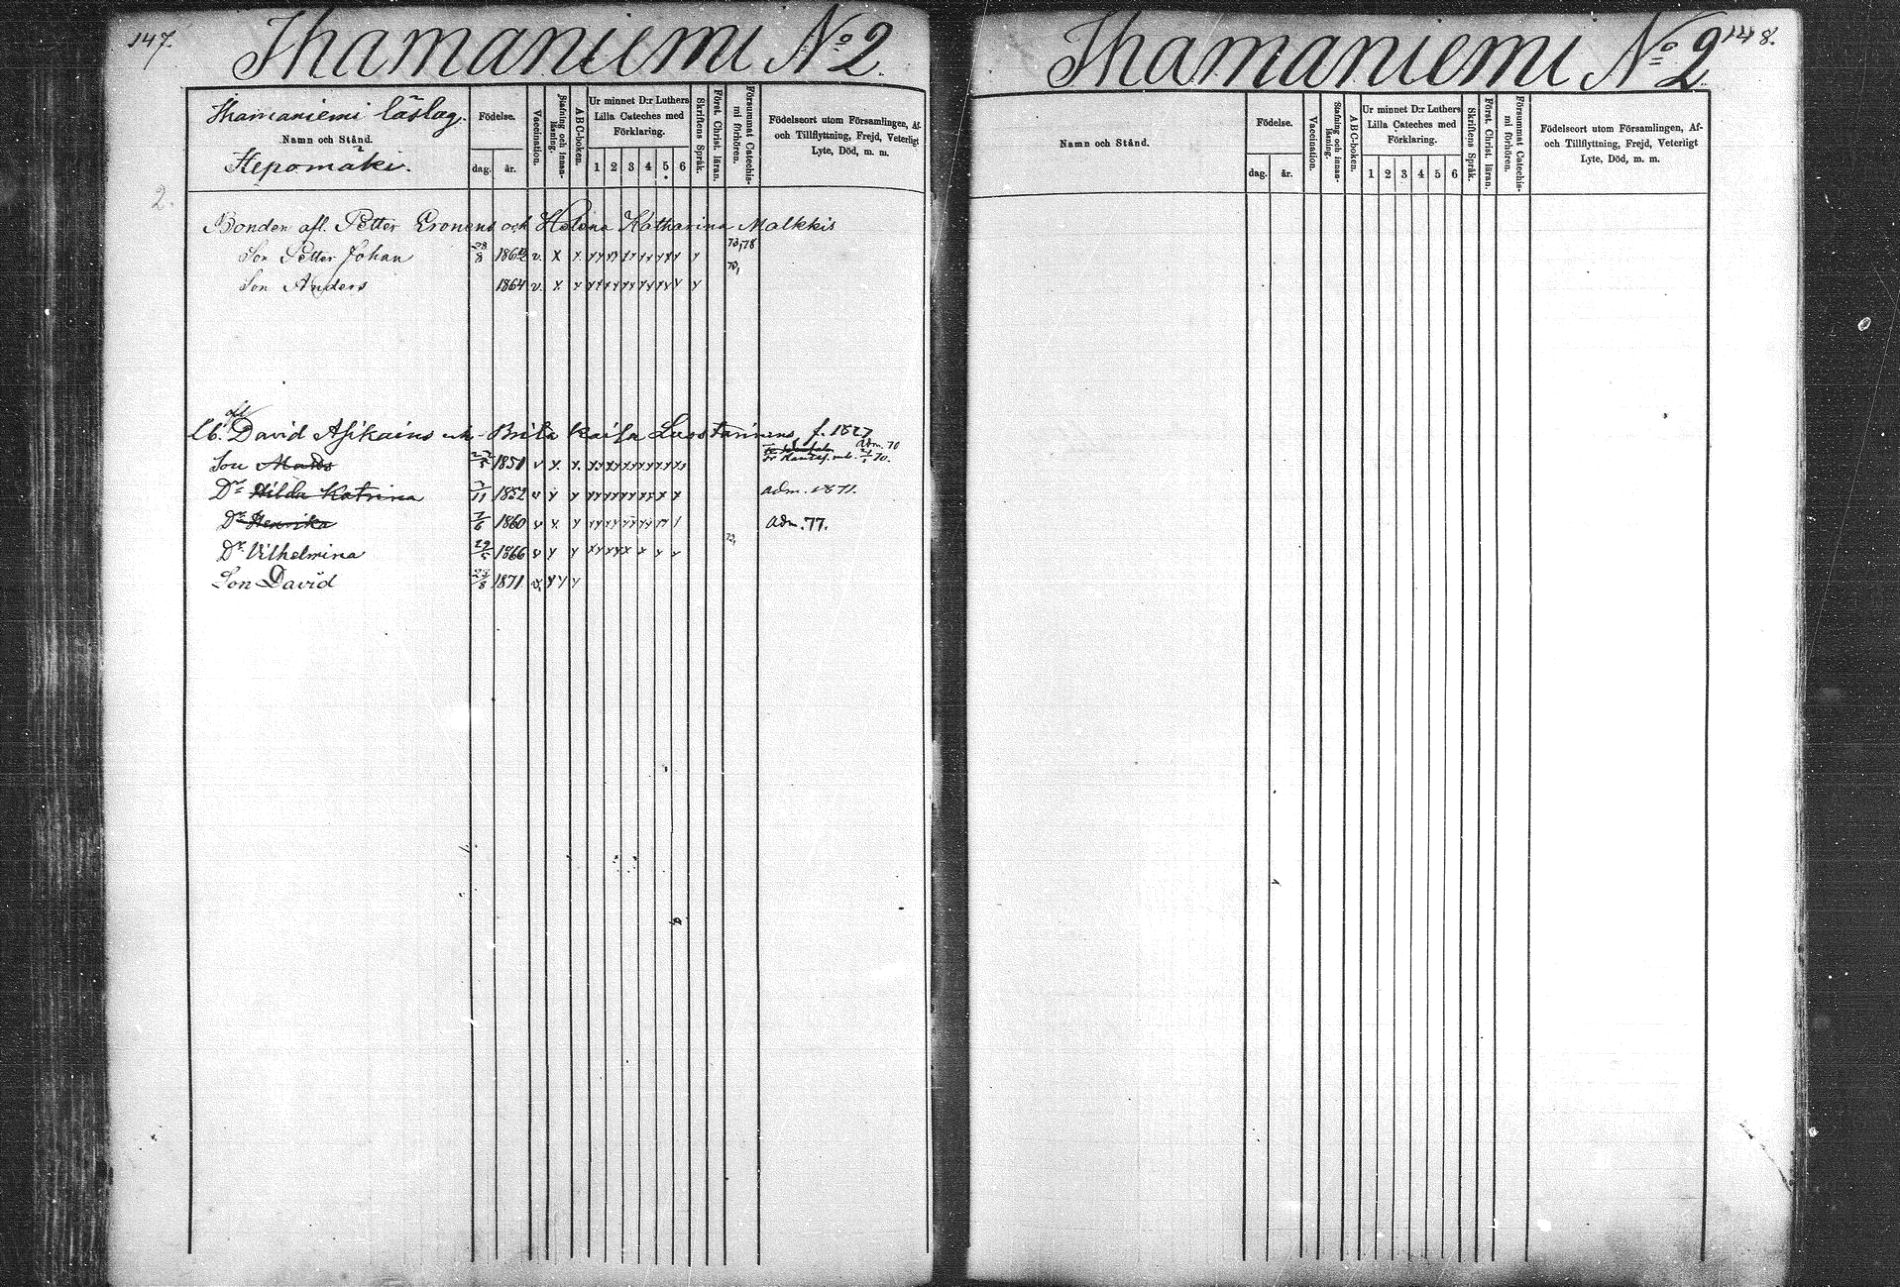 147.
Ihamaniemi No 2.
Ihamaniemi läslag.
Namn och Stånd.
Hepomäki.
Födelse.
dag. år.
Vaccination.
Stafning och innan-läsning.
ABC-boken.
Ur minnet D:r Luthers
Lilla Cateches med
Förklaring.
1 2 3 4 5 6
Skriftens Språk.
Först. Christ. läran.
Försummat Catechis-
mi förhören.
Födelseort utom Församlingen, Af-
och Tillflyttning, Frejd, Veterligt
Lyte, Död, m. m.
2.
Bonden afl. Petter Eronens och Helena Katharina Malkkis
Son Petter Johan 28/8 1862 v. x x x 73,78
Son Anders 1864 v. x x x
afl
David Asikains och Brita Kaisa f. 1827
Son 1851 v x x adm. 70
Dr Hilda Katrina 1852 v x x adm. 1871.
Dr Henrika 7/6 1860 v x x adm. 77.
Dr Vilhelmina 29/5 1866 v x x
Son David 23/8 1871 v. x x x
148.
Ihamaniemi No 2.
Namn och Stånd.
Födelse.
dag. år.
Vaccination.
Stafning och innan-läsning.
ABC-boken.
Ur minnet D:r Luthers
Lilla Cateches med
Förklaring.
1 2 3 4 5 6
Skriftens Språk.
Först. Christ. läran.
Försummat Catechis-
mi förhören.
Födelseort utom Församlingen, Af-
och Tillflyttning, Frejd, Veterligt
Lyte, Död, m. m.